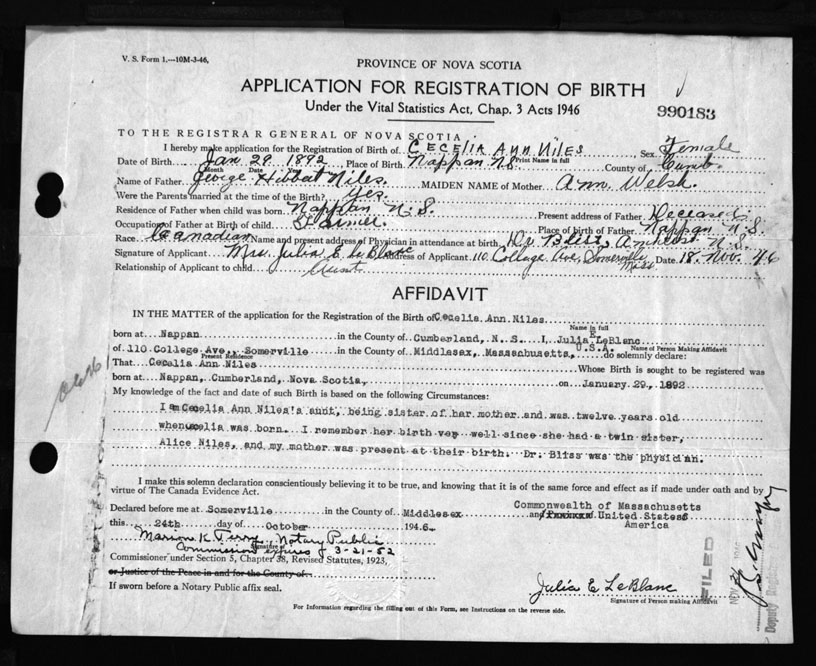 V. S. Form 1.—10M-3-46.
PROVINCE OF NOVA SCOTIA
APPLICATION FOR REGISTRATION OF BIRTH
Under the Vital Statistics Act, Chap. 3 Acts 1946
990183
TO THE REGISTRAR GENERAL OF NOVA SCOTIA
I hereby make application for the Registration of Birth of Cecelia Ann Niles Sex Female
Print Name in full
Date of Birth Jan 29 1892 Place of Birth Nappan N.S. County of Cumb.
Month Date Year
Name of Father George Hibbat Niles MAIDEN NAME of Mother Ann Welsh.
Were the Parents married at the time of the Birth? Yes.
Residence of Father when child was born Nappan N.S. Present address of Father Deceased
Occupation of Father at Birth of child Farmer. Place of birth of Father Nappan N.S.
Race Canadian Name and present address of Physician in attendance at birth Dr Bliss, Amherst N.S.
Signature of Applicant Mrs. Julia E. LeBlanc Address of Applicant 110 College Ave, Somerville Mass. Date 18 Nov. 46
Relationship of Applicant to child Aunt
AFFIDAVIT
IN THE MATTER of the application for the Registration of the Birth of Cecelia Ann Niles
Name in full
born at Nappan in the County of Cumberland, N.S. I, Julia E. LeBlanc
Name of Person Making Affidavit
of 110 College Ave., Somerville in the County of Middlesex, Massachusetts, U.S.A. do solemnly declare:
Present Residence
That Cecelia Ann Niles Whose Birth is sought to be registered was
born at Nappan, Cumberland, Nova Scotia, on January 29, 1892
My knowledge of the fact and date of such Birth is based on the following Circumstances:
I am Cecelia Ann Niles's aunt, being sister of her mother and was twelve years old
when Cecelia was born. I remember her birth very well since she had a twin sister,
Alice Niles, and my mother was present at their birth. Dr. Bliss was the physician.
I make this solemn declaration conscientiously believing it to be true, and knowing that it is of the same force and effect as if made under oath and by
virtue of The Canada Evidence Act.
Declared before me at Somerville in the County of Middlesex Commonwealth of Massachusetts
and United States
this 24th day of October 1946. America
Marion K. Terry, Notary Public
Signature of
Commission expires 3-21-52
Commissioner under Section 5, Chapter 38, Revised Statutes, 1923,
or Justice of the Peace in and for the County of
If sworn before a Notary Public affix seal.
Julia E LeBlanc
Signature of Person making Affidavit
For Information regarding the filling out of this Form, see Instructions on the reverse side.
FILED
NOV 1946
Deputy Registrar